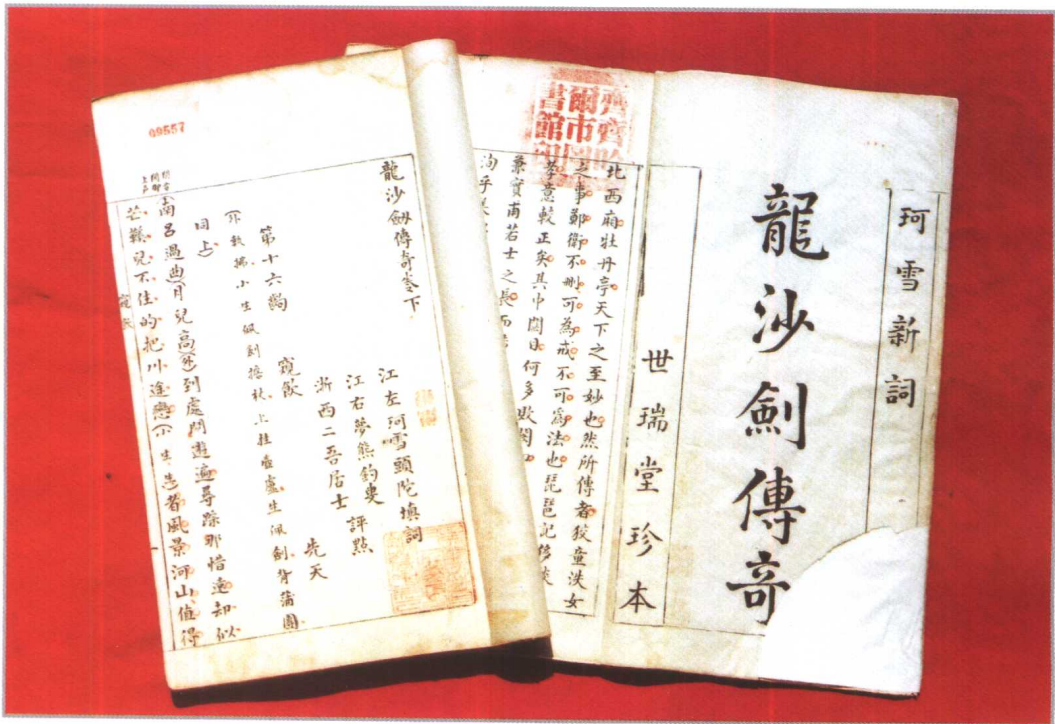 珂雪新詞
龍沙劍傳奇
世瑞堂珍本
齊齊哈
爾市圖
書館印
北西廂牡丹亭天下之至妙也然所傳者狡童泆女
之事鄭衛不刪可為戒不可為法也琵琶記
孝意較正矣其中關目何多敗闕
兼實甫若士之長而
洵乎
09557
龍沙劔傳奇卷下
江左珂雪頭陀填詞
江右夢熊釣叟 評點
浙西二吾居士
第十六齣 窺飲 先天
(外執拂小生佩劍 杖上挂壺盧生佩劍背蒲團
同上)
南呂過曲(月兒高)(外)到處閒遊遍尋踪那惜遠却似
芒鞵兒不住的把川途戀(小生) 者風景河山值得
窺飲